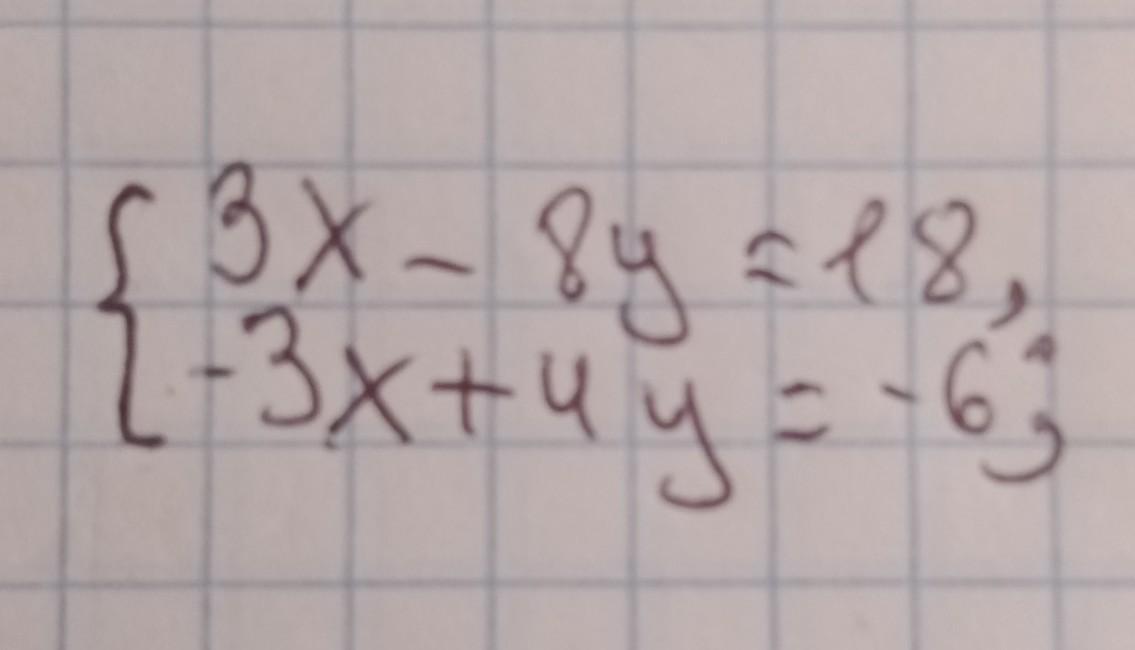 { 3x - 8y = 18,
-3x + 4y = -6;